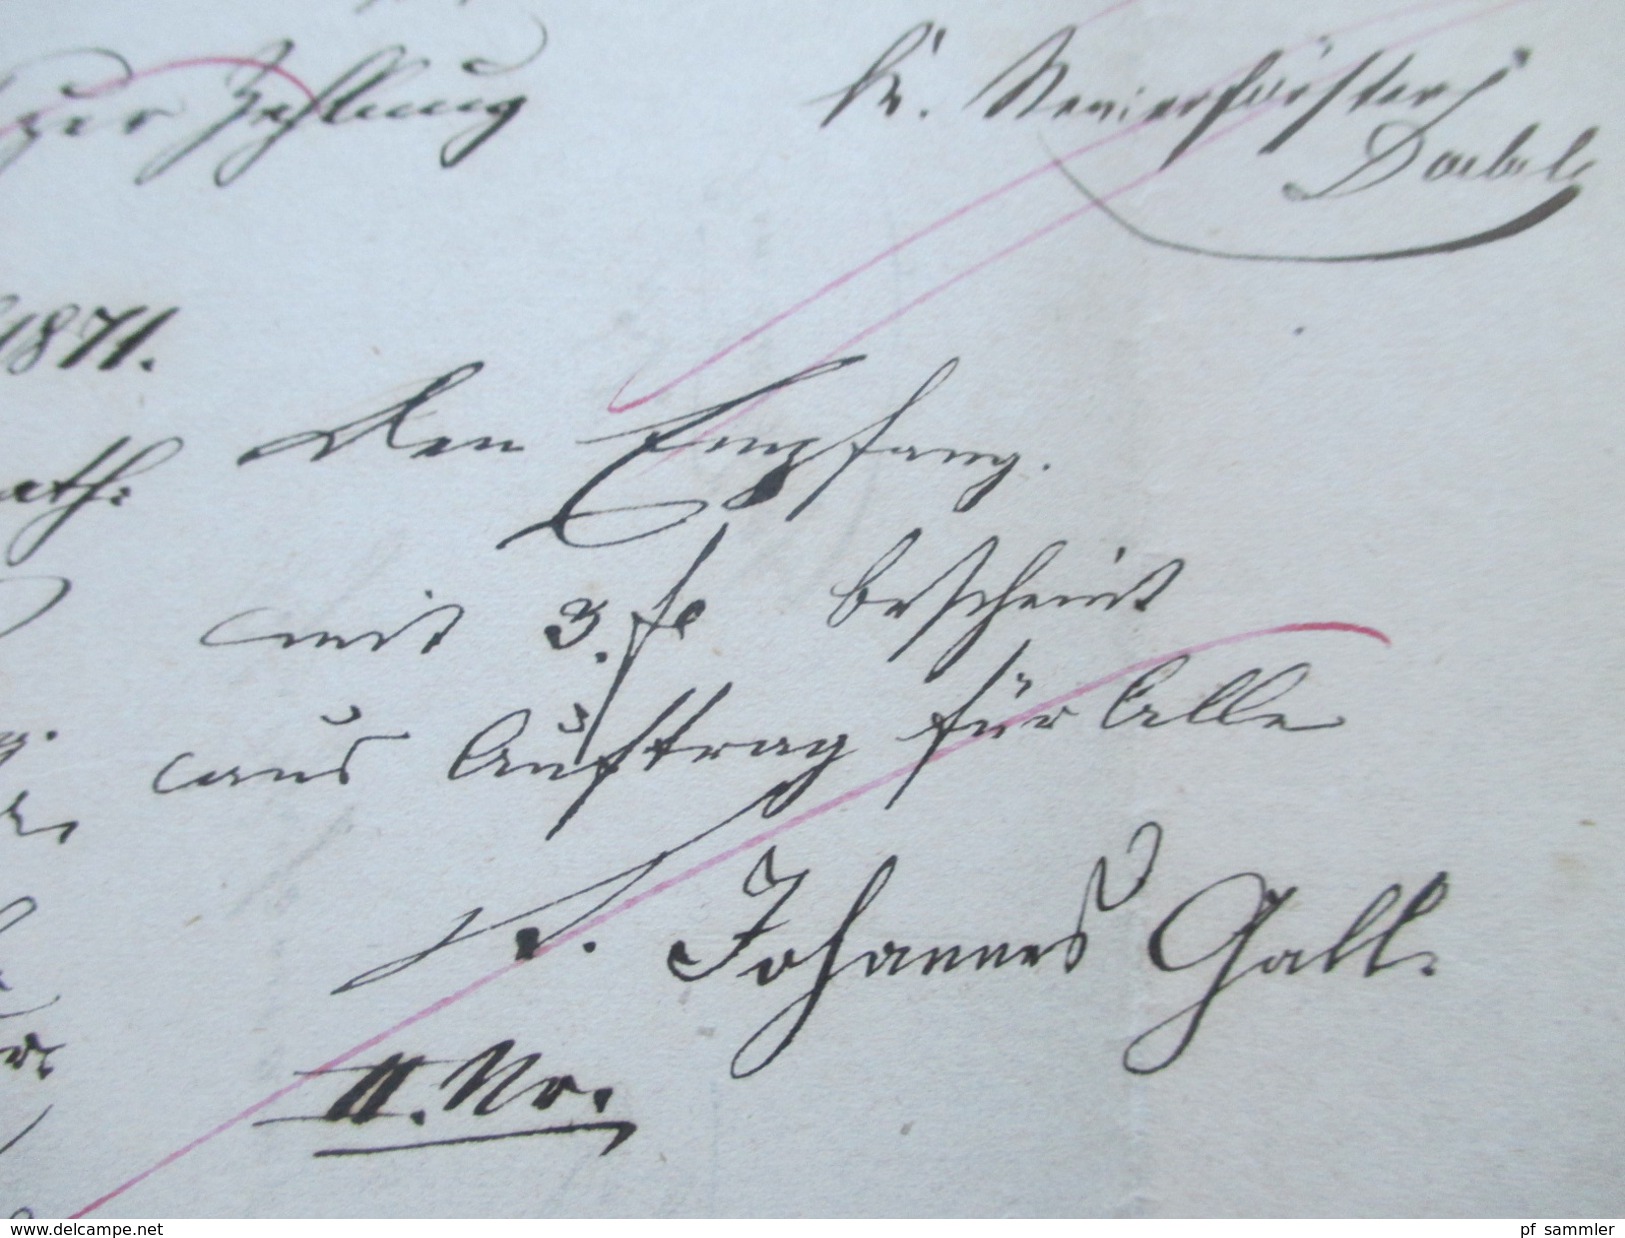 zur Zahlung
K. Revierförster
Doebele
1871.
Den Empfang
mit 3. fl bescheint
aus Auftrag für Alle
T. Johannes Gall.
II. No.
www.delcampe.net
pf_sammler